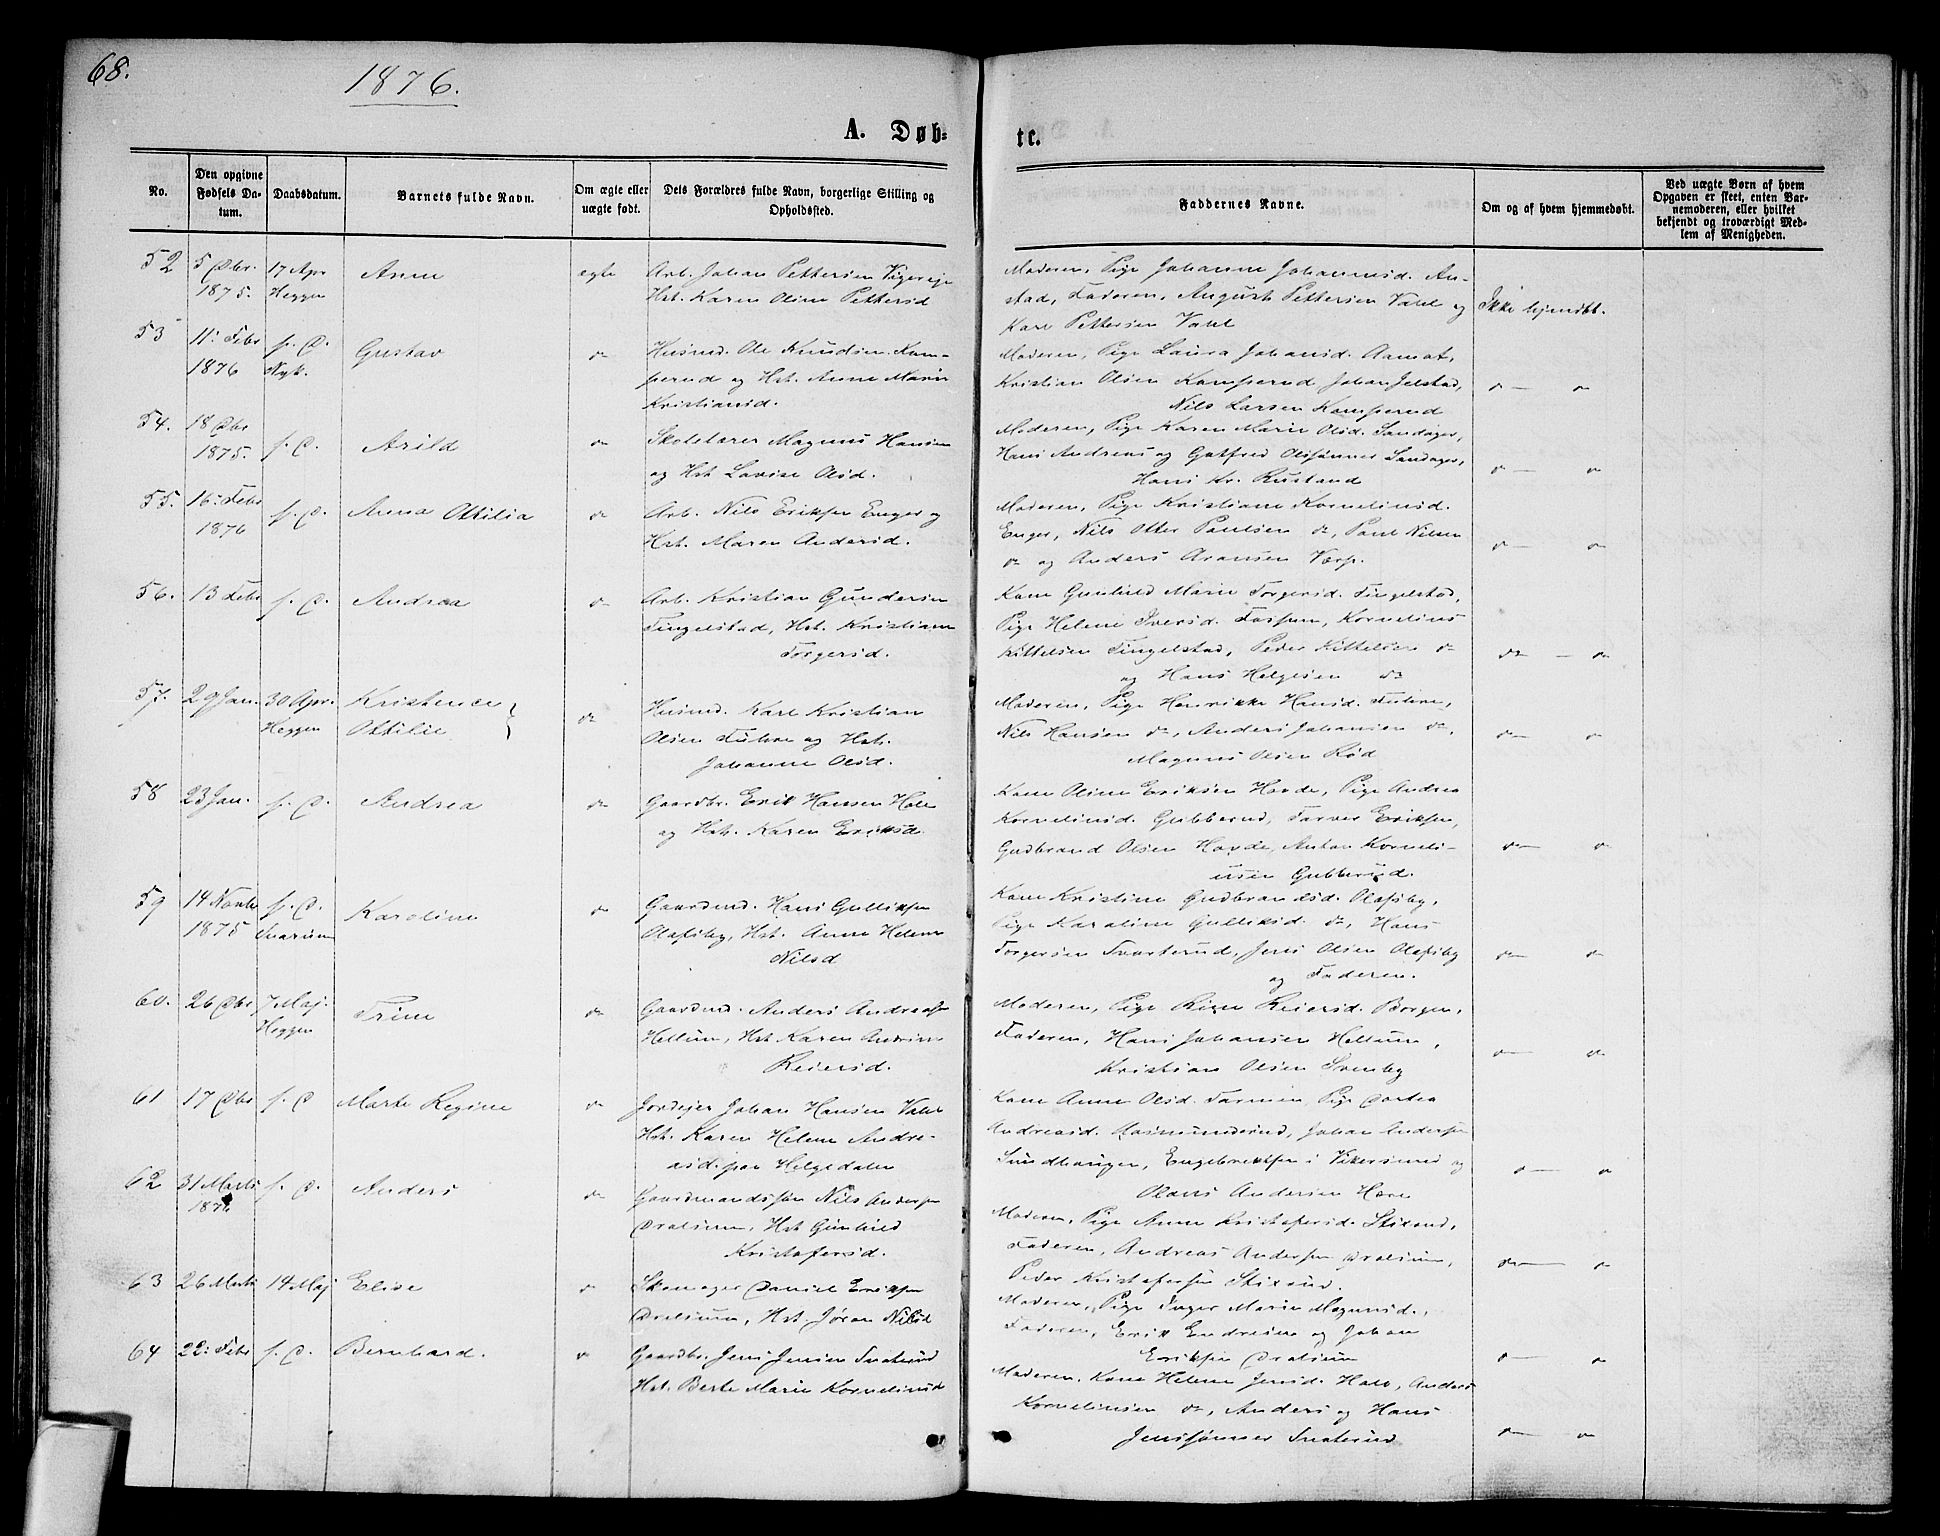 68.
1876.
A. Døb-
te.
No.
Den opgivne Fødsels Da-tum.
Daabsdatum.
Barnets fulde Navn.
Om ægte eller uægte født.
Dets Forældres fulde Navn, borgerlige Stilling og Opholdssted.
Faddernes Navne.
Om og af hvem hjemmedøbt.
Ved uægte Børn af hvem Opgaven er skeet, enten Bar-nemoderen, eller hvilket bekjendt og troværdigt Med-lem af Menigheden.
52
5 Dbr. 1875.
17 Apr Heggen
Anne
egte
Arb. Johan Pettersen
Hst. Karen Oline Pettersd
Moderen, Pige Johanne Johannesd. An-
stad, Faderen, August Pettersen Vahl og
Karl Pettersen Vahl
Ikke hjemdbt.
53
11: Febr 1876
s. D. Nysk.
Gustav
do
Husmd. Ole Knudsen Kam-
perud og Hst. Anne Marie
Kristiansd.
Moderen, Pige Laura Johansd. Aamot,
Kristian Olsen Kamperud, Johan Jelstad,
Nils Larsen Kamperud
do do
54.
18 Dbr 1875.
s. D.
Arild
do
Skolelærer Magnus Hansen
og Hst. Lovise Olsd.
Moderen, Pige Karen Marie Olsd. Sandager,
Hans Andreas og Gotfred Olssønner Sandager,
Hans Kr. Rustand
do do
55.
16: Febr 1876
s. D.
Anna Ottilia
do
Arb. Nils Eriksen Enger og
Hst. Maren Andersd.
Moderen, Pige Kristiane Korneliusd.
Enger, Nils Otter Paulsen do, Paul Nilsen
do og Anders Aronsen Vorp.
do do
56.
13 Febr
s. D.
Andrea
do
Arb. Kristian Gundersen
Tingelstad, Hst. Kristiane
Torgersd.
Kone Gunhild Marie Torgersd. Tingelstad,
Pige Helene Iversd. Fossen, Kornelius
Kittelsen Tingelstad, Peder Kittelsen do
og Hans Helgesen do
do do
57.
29 Jan.
30 Apr. Heggen
Kristence
Ottilie
do
Husmd. Karl Kristian
Olsen og Hst.
Johanne Olsd.
Moderen, Pige Henrikke Hansd.
Nils Hansen do, Anders Johansen do,
Magnus Olsen Rød
do do
58
23 Jan.
s. D.
Andrea
do
Gaardbr. Erik Hansen Hole
og Hst. Karen Eriksd.
Kone Oline Eriksen Hovde, Pige Andrea
Korneliusd. Gubberud, Eriksen,
Gudbrand Olsen Hovde, Anton Korneli-
usen Gubberud.
do do
59
14 Novbr 1875
s. D. Snarum
Karoline
do
Gaardmd. Hans Gulliksen
Olafsby, Hst. Anne Helene
Nilsd
Kone Kristine Gudbrandsd. Olafsby,
Pige Karoline Gulliksd. do, Hans
Torgersen Svarterud, Jens Olsen Olafsby
og Faderen.
do do
60.
26 Dbr
7 Maj. Heggen
Trine
do
Gaardmd. Anders Andreass.
Hellum, Hst. Karen Andrine
Reiersd.
Moderen, Pige Reiersd. Borgen,
Faderen, Hans Johansen Hellum,
Kristian Olsen Svenby
do do
61
17 Dbr
s. D
Marte Regine
do
Jordejer Johan Hansen Vahl
Hst. Karen Helene Andre-
asd. paa Helgedalen
Kone Anne Olsd. Pige Dortea
Andreasd. Aasmunderud, Johan Andersen
Sundhaugen, Engebretsen i Vikersund og
Andersen Hære
do do
62
31 Marts 1876
s. D.
Anders
do
Gaardmandssøn Nils Andersen
Dralsum, Hst. Gunhild
Kristofersd.
Moderen, Pige Anne Kristofersd. Stixrud,
Faderen, Andreas Andersen Dralsum,
Peder Kristofersen Stixrud.
do do
63
26 Marts
14 Maj
Elise
do
Skomager Daniel Eriksen
Dralsum, Hst. Jøran Nilsd
Moderen, Pige Inger Marie Magnusd.,
Faderen, Erik Endresen og Johan
Eriksen Dralsum
do do
64
22: Febr
s. D.
Bernhard.
do
Gaardbr. Jens Jensen Snaterud
Hst. Berte Marie Korneliusd
Moderen, Kone Helene Jensd. Hole, Anders
Korneliusen do, Anders og Hans
Jenssønner Snaterud
do do